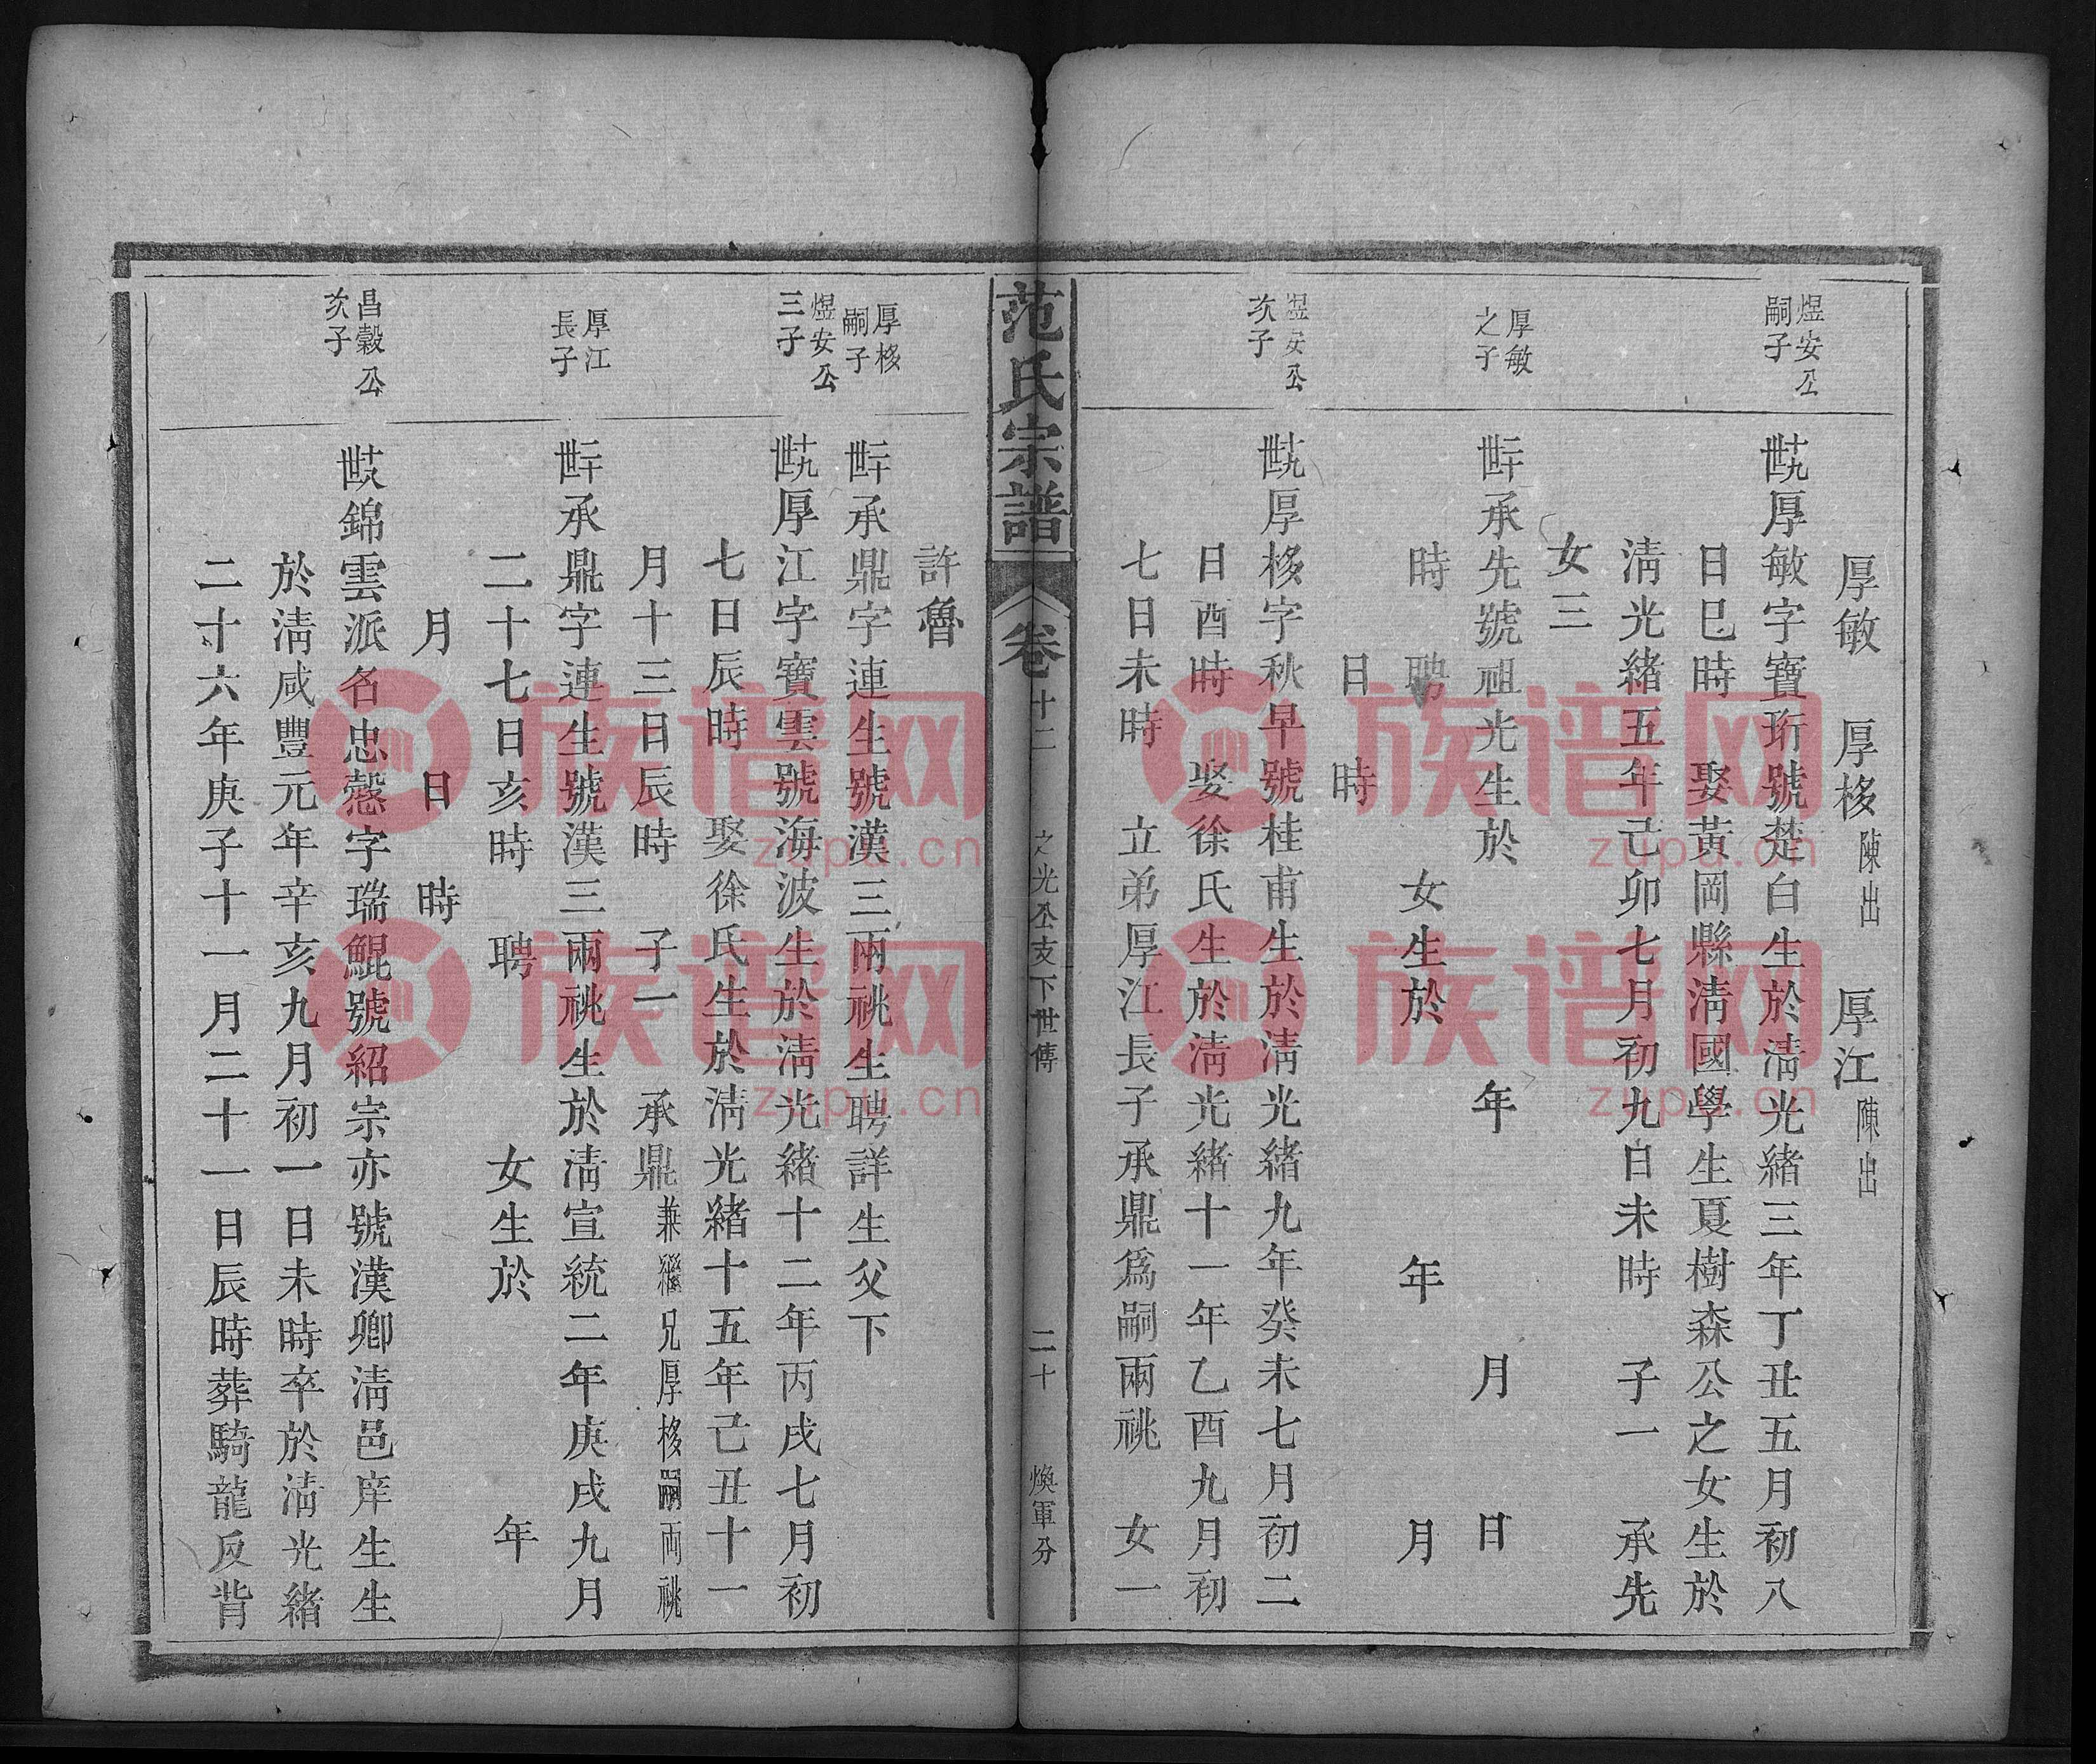 厚敏　厚移陳出　厚江陳出
煜安公嗣子
十九世厚敏字寶珩號楚白生於淸光緖三年丁丑五月初八
日巳時　娶黃岡縣淸國學生夏樹森公之女生於
淸光緖五年己卯七月初九日未時　子一　承先
女三
厚敏之子
二十世承先號祖光生於　年　月　日
時　聘　女生於　年　月
日　時
煜安公次子
十九世厚移字秋早號桂甫生於淸光緖九年癸未七月初二
日酉時　娶徐氏生於淸光緖十一年乙酉九月初
七日未時　立弟厚江長子承鼎爲嗣兩祧　女一
范氏宗譜　卷十二　之光公支下世傳　二十　煥軍分
許魯
厚移嗣子
二十世承鼎字連生號漢三兩祧生聘詳生父下
煜安公三子
十九世厚江字寶雲號海波生於淸光緖十二年丙戌七月初
七日辰時　娶徐氏生於淸光緖十五年己丑十一
月十三日辰時　子一　承鼎兼繼兄厚移嗣兩祧
厚江長子
二十世承鼎字連生號漢三兩祧生於淸宣統二年庚戌九月
二十七日亥時　聘　女生於　年
月　日　時
昌穀公次子
世錦雲派名忠慤字瑞鯤號紹宗亦號漢卿淸邑庠生生
於淸咸豐元年辛亥九月初一日未時卒於淸光緖
二十六年庚子十一月二十一日辰時葬騎龍反背
族谱网
zupu.cn
族谱网
zupu.cn
族谱网
zupu.cn
族谱网
zupu.cn